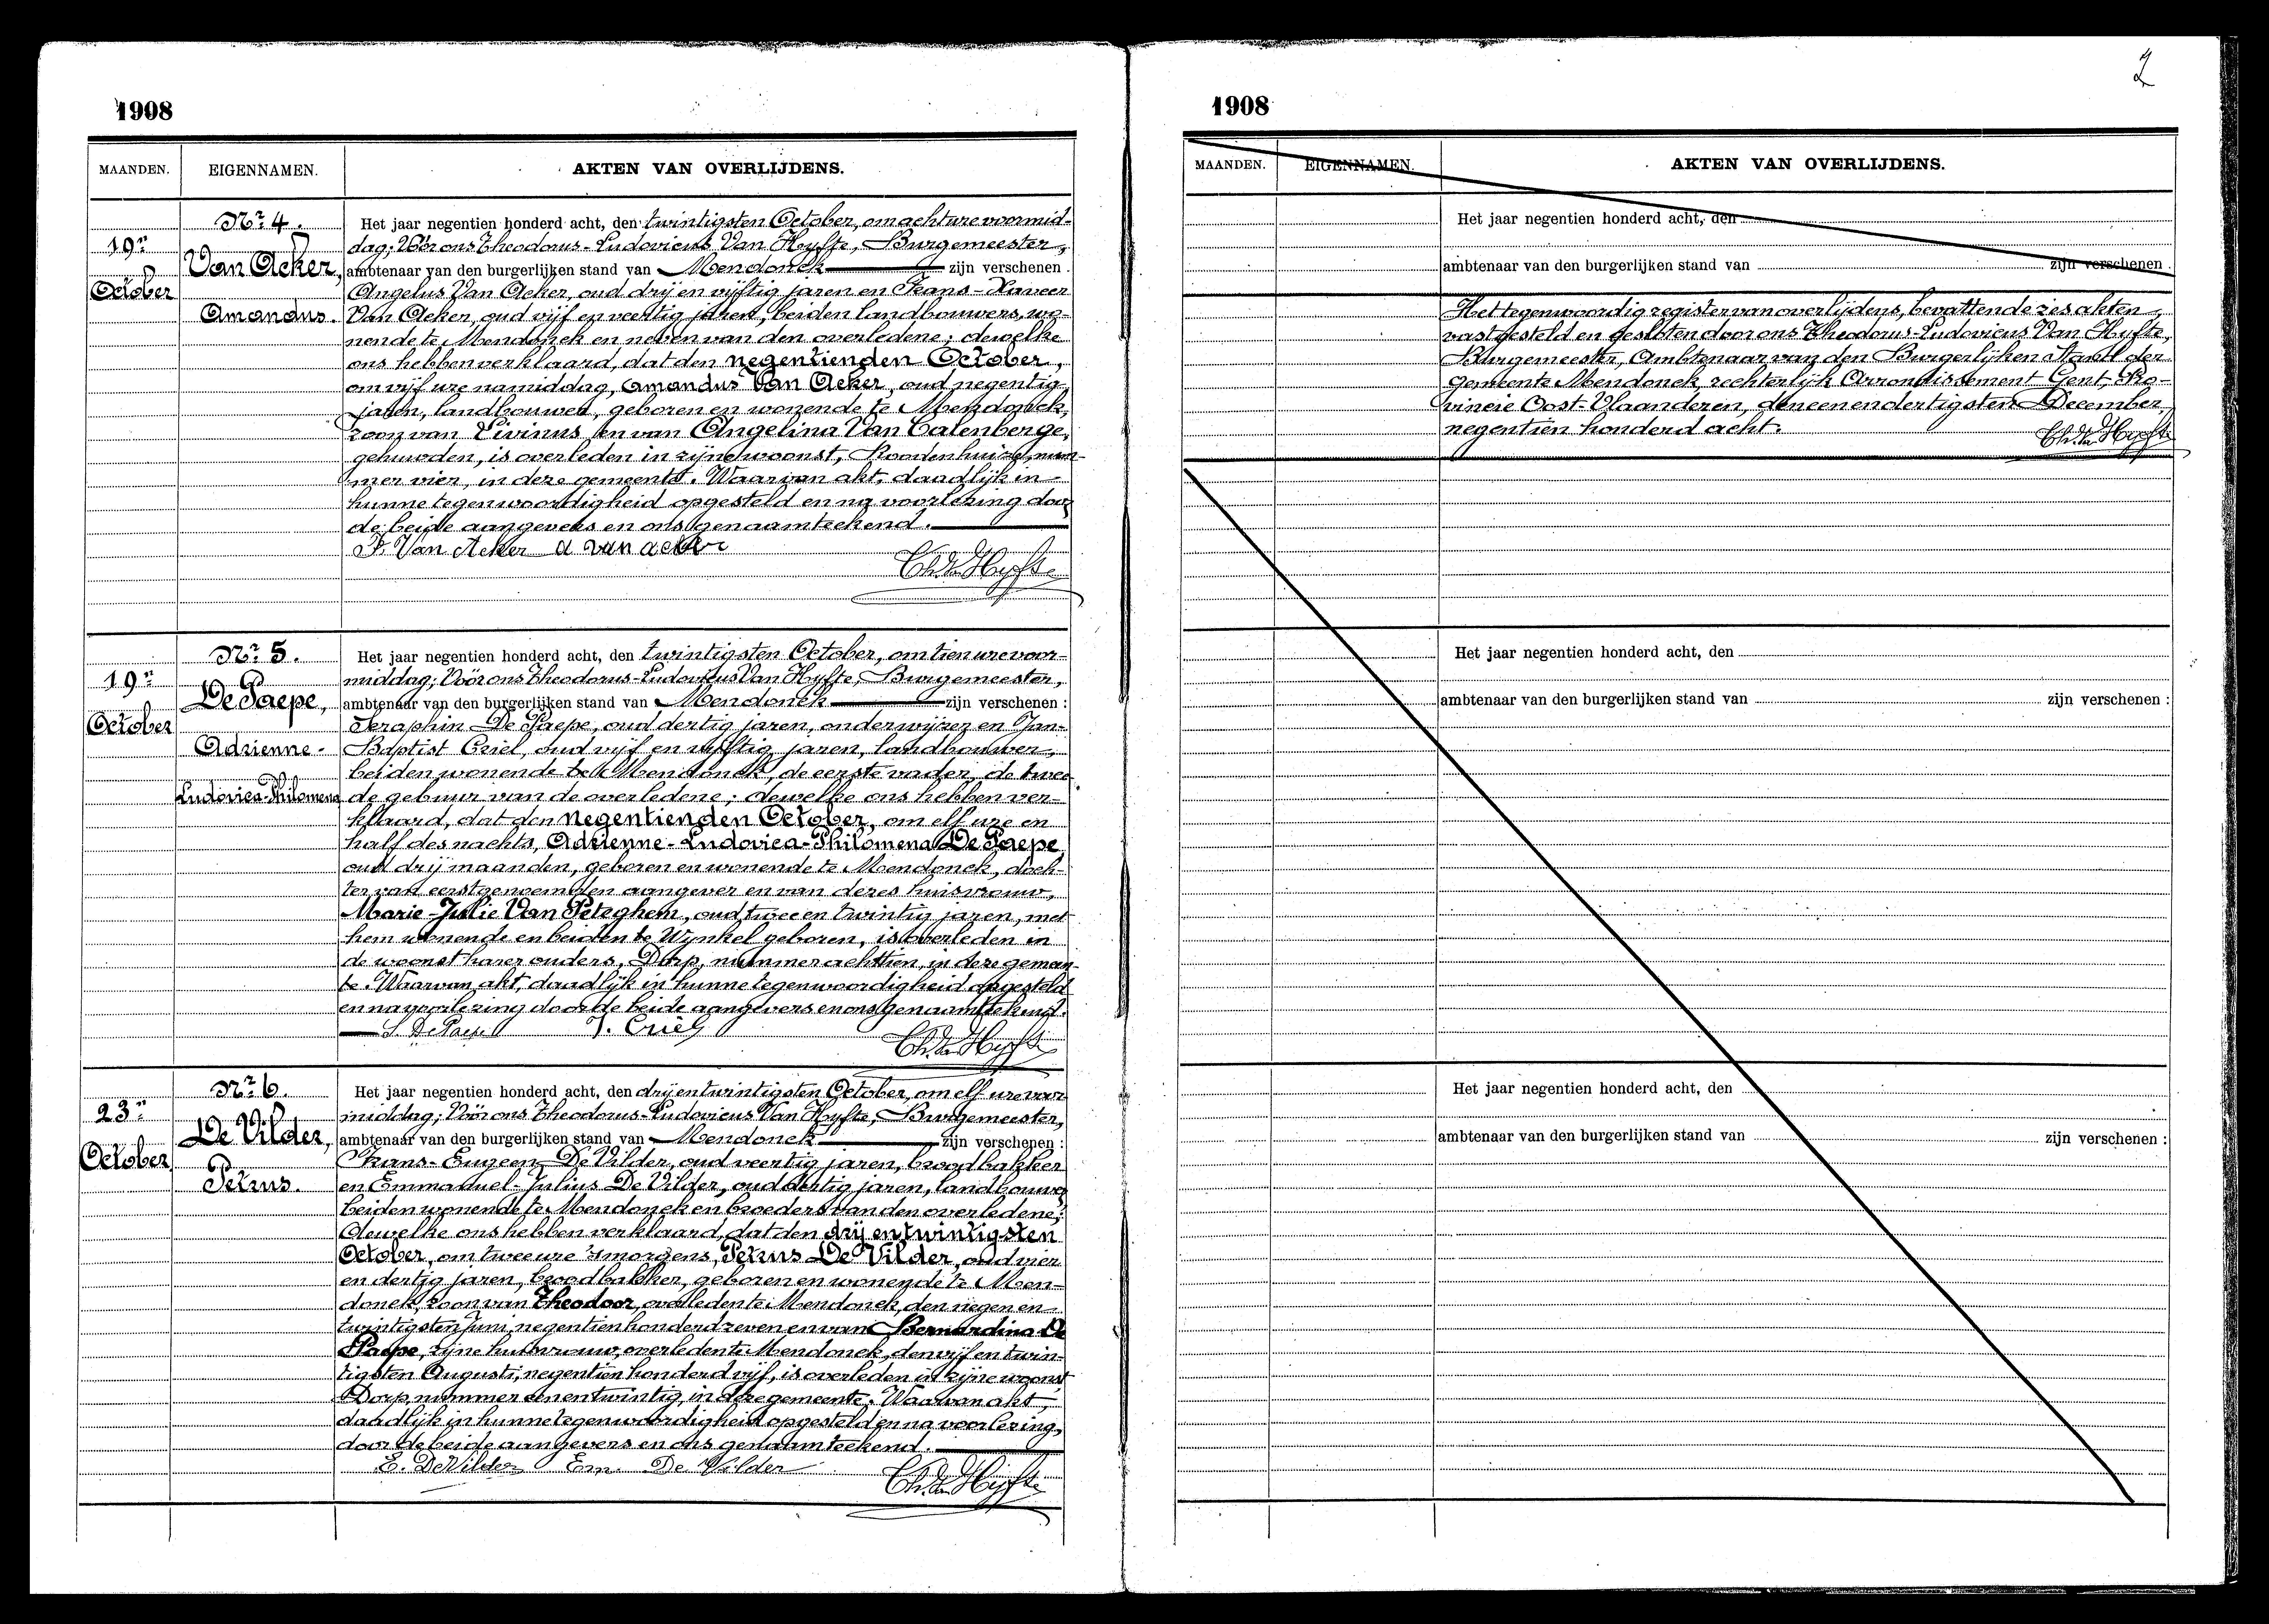 1908
MAANDEN. EIGENNAMEN. AKTEN VAN OVERLIJDENS.
19n
October
Nr 4.
Van Acker,
Amandus.
Het jaar negentien honderd acht, den twintigsten October, om acht ure voormid-
dag; Vóór ons Theodorus-Ludovicus Van Hyfte, Burgemeester,
ambtenaar van den burgerlijken stand van Mendonck zijn verschenen :
Angelus Van Acker, oud drij en vijftig jaren en Frans-Xaveer
Van Acker, oud vijf en veertig jaren, beiden landbouwers, wo-
nende te Mendonck en neven van den overledene; dewelke
ons hebben verklaard, dat den negentienden October,
om vijf ure namiddag, Amandus Van Acker, oud negentig
jaren, landbouwer, geboren en wonende te Mendonck,
zoon van Livinus en van Angelina Van Calenberge,
gehuwden, is overleden in zijne woonst, Roodenhuize, num-
mer vier, in deze gemeente. Waarvan akt, daadlijk in
hunne tegenwoordigheid opgesteld en na voorlezing door
de beide aangevers en ons genaamteekend.
F. Van Acker a van acker
Th. Van Hyfte
19n
October
Nr 5.
De Paepe,
Adrienne-
Ludovica-Philomena
Het jaar negentien honderd acht, den twintigsten October, om tien ure voor-
middag; Vóór ons Theodorus-Ludovicus Van Hyfte, Burgemeester,
ambtenaar van den burgerlijken stand van Mendonck zijn verschenen :
Seraphin De Paepe, oud dertig jaren, onderwijzer en Jan-
Baptist Criel, oud vijf en vijftig jaren, landbouwer,
beiden wonende te Mendonck, de eerste vader, de twee-
de gebuur van de overledene; dewelke ons hebben ver-
klaard, dat den negentienden October, om elf ure en
half des nachts, Adrienne-Ludovica-Philomena De Paepe
oud drij maanden, geboren en wonende te Mendonck, doch-
ter van eerstgenoemden aangever en van deres huisvrouw,
Marie-Julie Van Peteghem, oud twee en twintig jaren, met
hem wonende en beiden te Wynkel geboren, is overleden in
de woonst harer ouders, Dorp, nummer achttien, in deze gemeen-
te. Waarvan akt, daadlijk in hunne tegenwoordigheid opgesteld
en na voorlezing door de beide aangevers en ons genaamteekend.
S. De Paepe J. Criel
Th. Van Hyfte
23n
October
Nr 6.
De Vilder,
Petrus.
Het jaar negentien honderd acht, den drij en twintigsten October, om elf ure voor
middag; Vóór ons Theodorus-Ludovicus Van Hyfte, Burgemeester,
ambtenaar van den burgerlijken stand van Mendonck zijn verschenen :
Frans-Eugeen De Vilder, oud veertig jaren, broodbakker
en Emmanuel-Julius De Vilder, oud dertig jaren, landbouwer
beiden wonende te Mendonck en broeders van den overledene;
dewelke ons hebben verklaard, dat den drij en twintigsten
October, om twee ure 's morgens, Petrus De Vilder, oud vier
en dertig jaren, broodbakker, geboren en wonende te Men-
donck, zoon van Theodoor, overleden te Mendonck, den negen en
twintigsten Juni negentien honderd zeven en van Bernardina De
Paepe, zijne huisvrouw, overleden te Mendonck, den vijf en twin-
tigsten Augusti, negentien honderd vijf, is overleden in zijne woonst
Dorp, nummer een en twintig, in deze gemeente. Waarvan akt,
daadlijk in hunne tegenwoordigheid opgesteld en na voorlezing,
door de beide aangevers en ons genaamteekend.
E. De Vilder Em. De Vilder
Th. Van Hyfte
2
1908
MAANDEN. EIGENNAMEN. AKTEN VAN OVERLIJDENS.
Het jaar negentien honderd acht, den
ambtenaar van den burgerlijken stand van zijn verschenen :
Het tegenwoordig register van overlijdens, bevattende zes akten,
vastgesteld en gesloten door ons Theodorus-Ludovicus Van Hyfte,
Burgemeester, Ambtenaar van den Burgerlijken Stand der
gemeente Mendonck, rechterlijk Arrondissement Gent, Pro-
vincie Oost-Vlaanderen, den een en dertigsten December,
negentien honderd acht.
Th. Van Hyfte
Het jaar negentien honderd acht, den
ambtenaar van den burgerlijken stand van zijn verschenen :
Het jaar negentien honderd acht, den
ambtenaar van den burgerlijken stand van zijn verschenen :